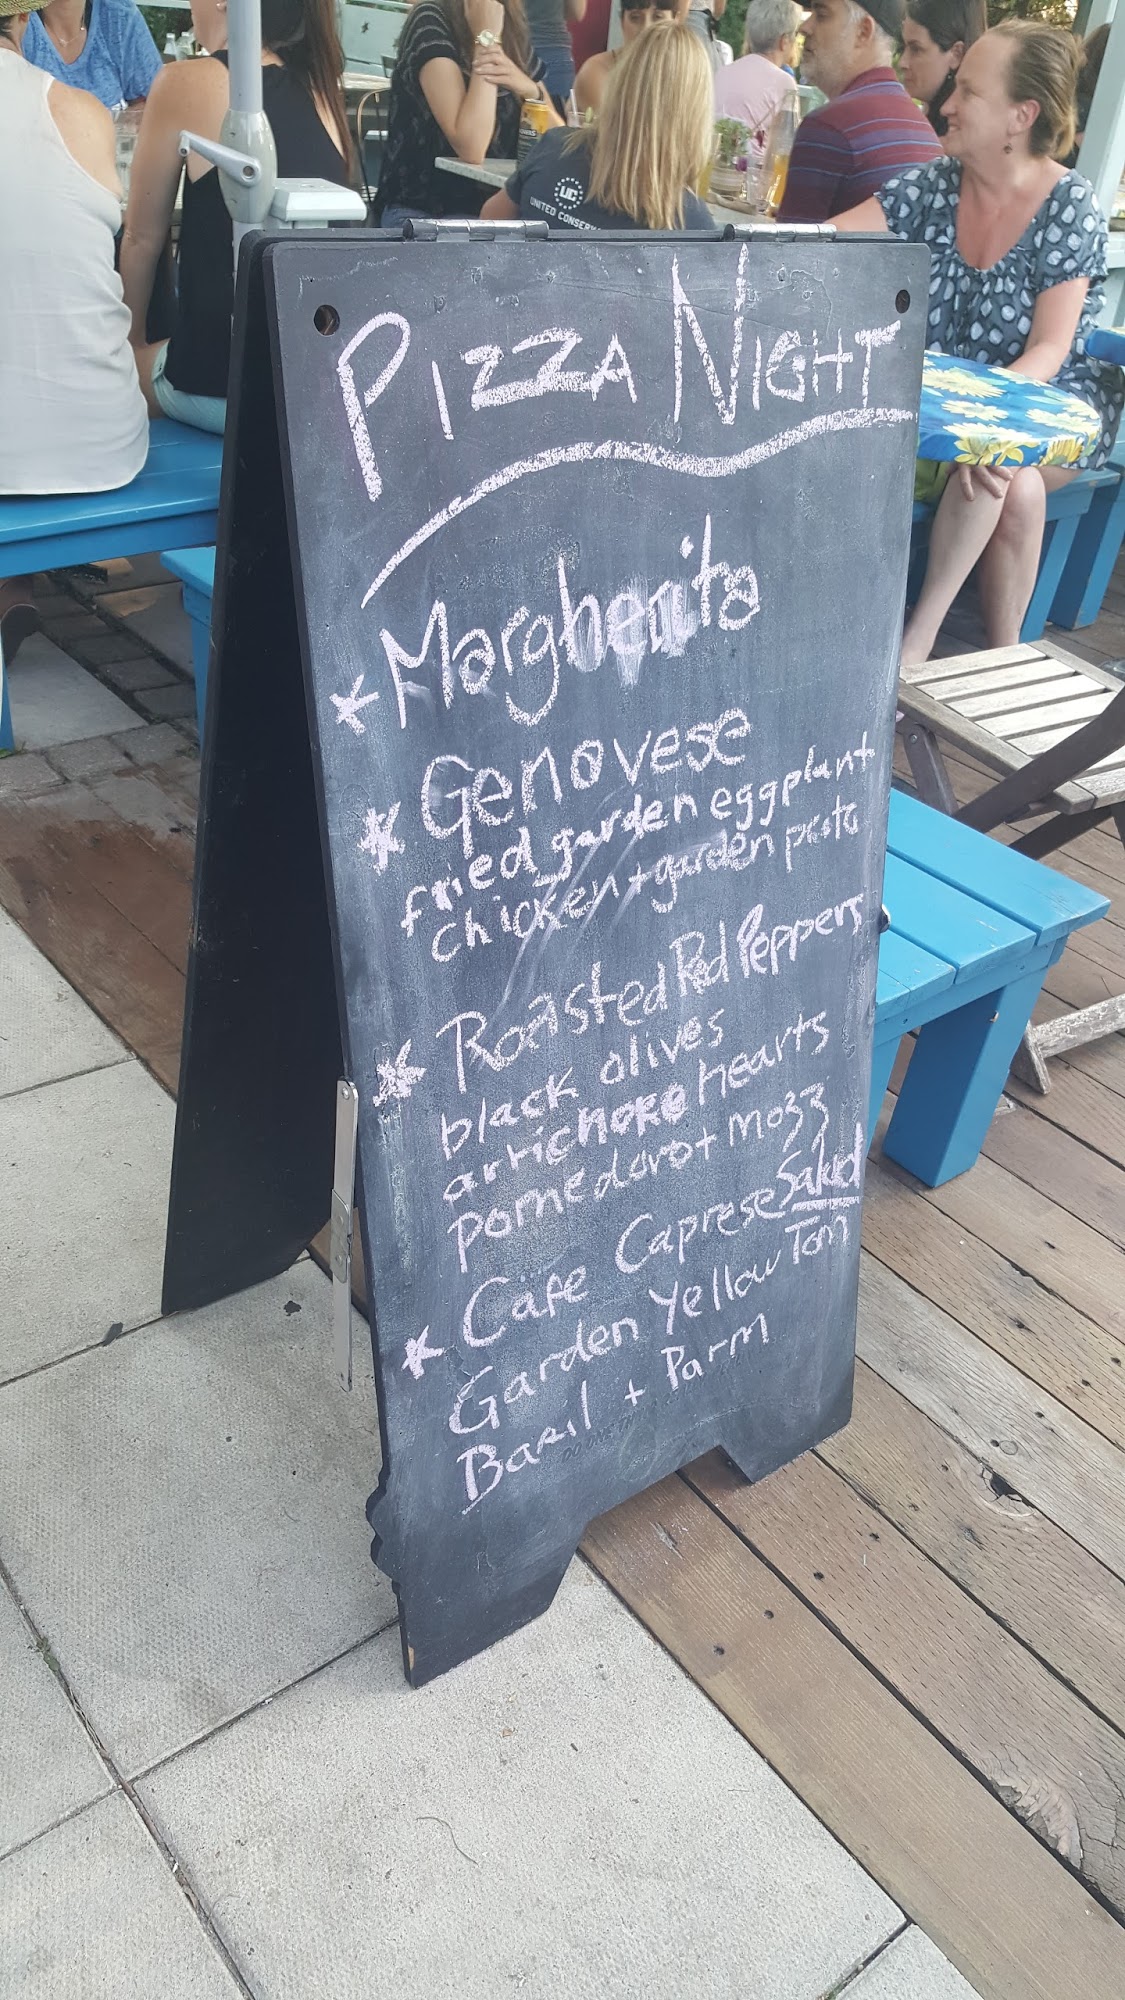 PIZZA NIGHT
* Margherita
* Genovese
fried garden eggplant
chicken + garden pesto
* Roasted Red Peppers
black olives
artichoke hearts
pomedorot mozz
* Cafe Caprese Salad
Garden Yellow Tom
Basil + Parm
UC
UNITED CONSERV